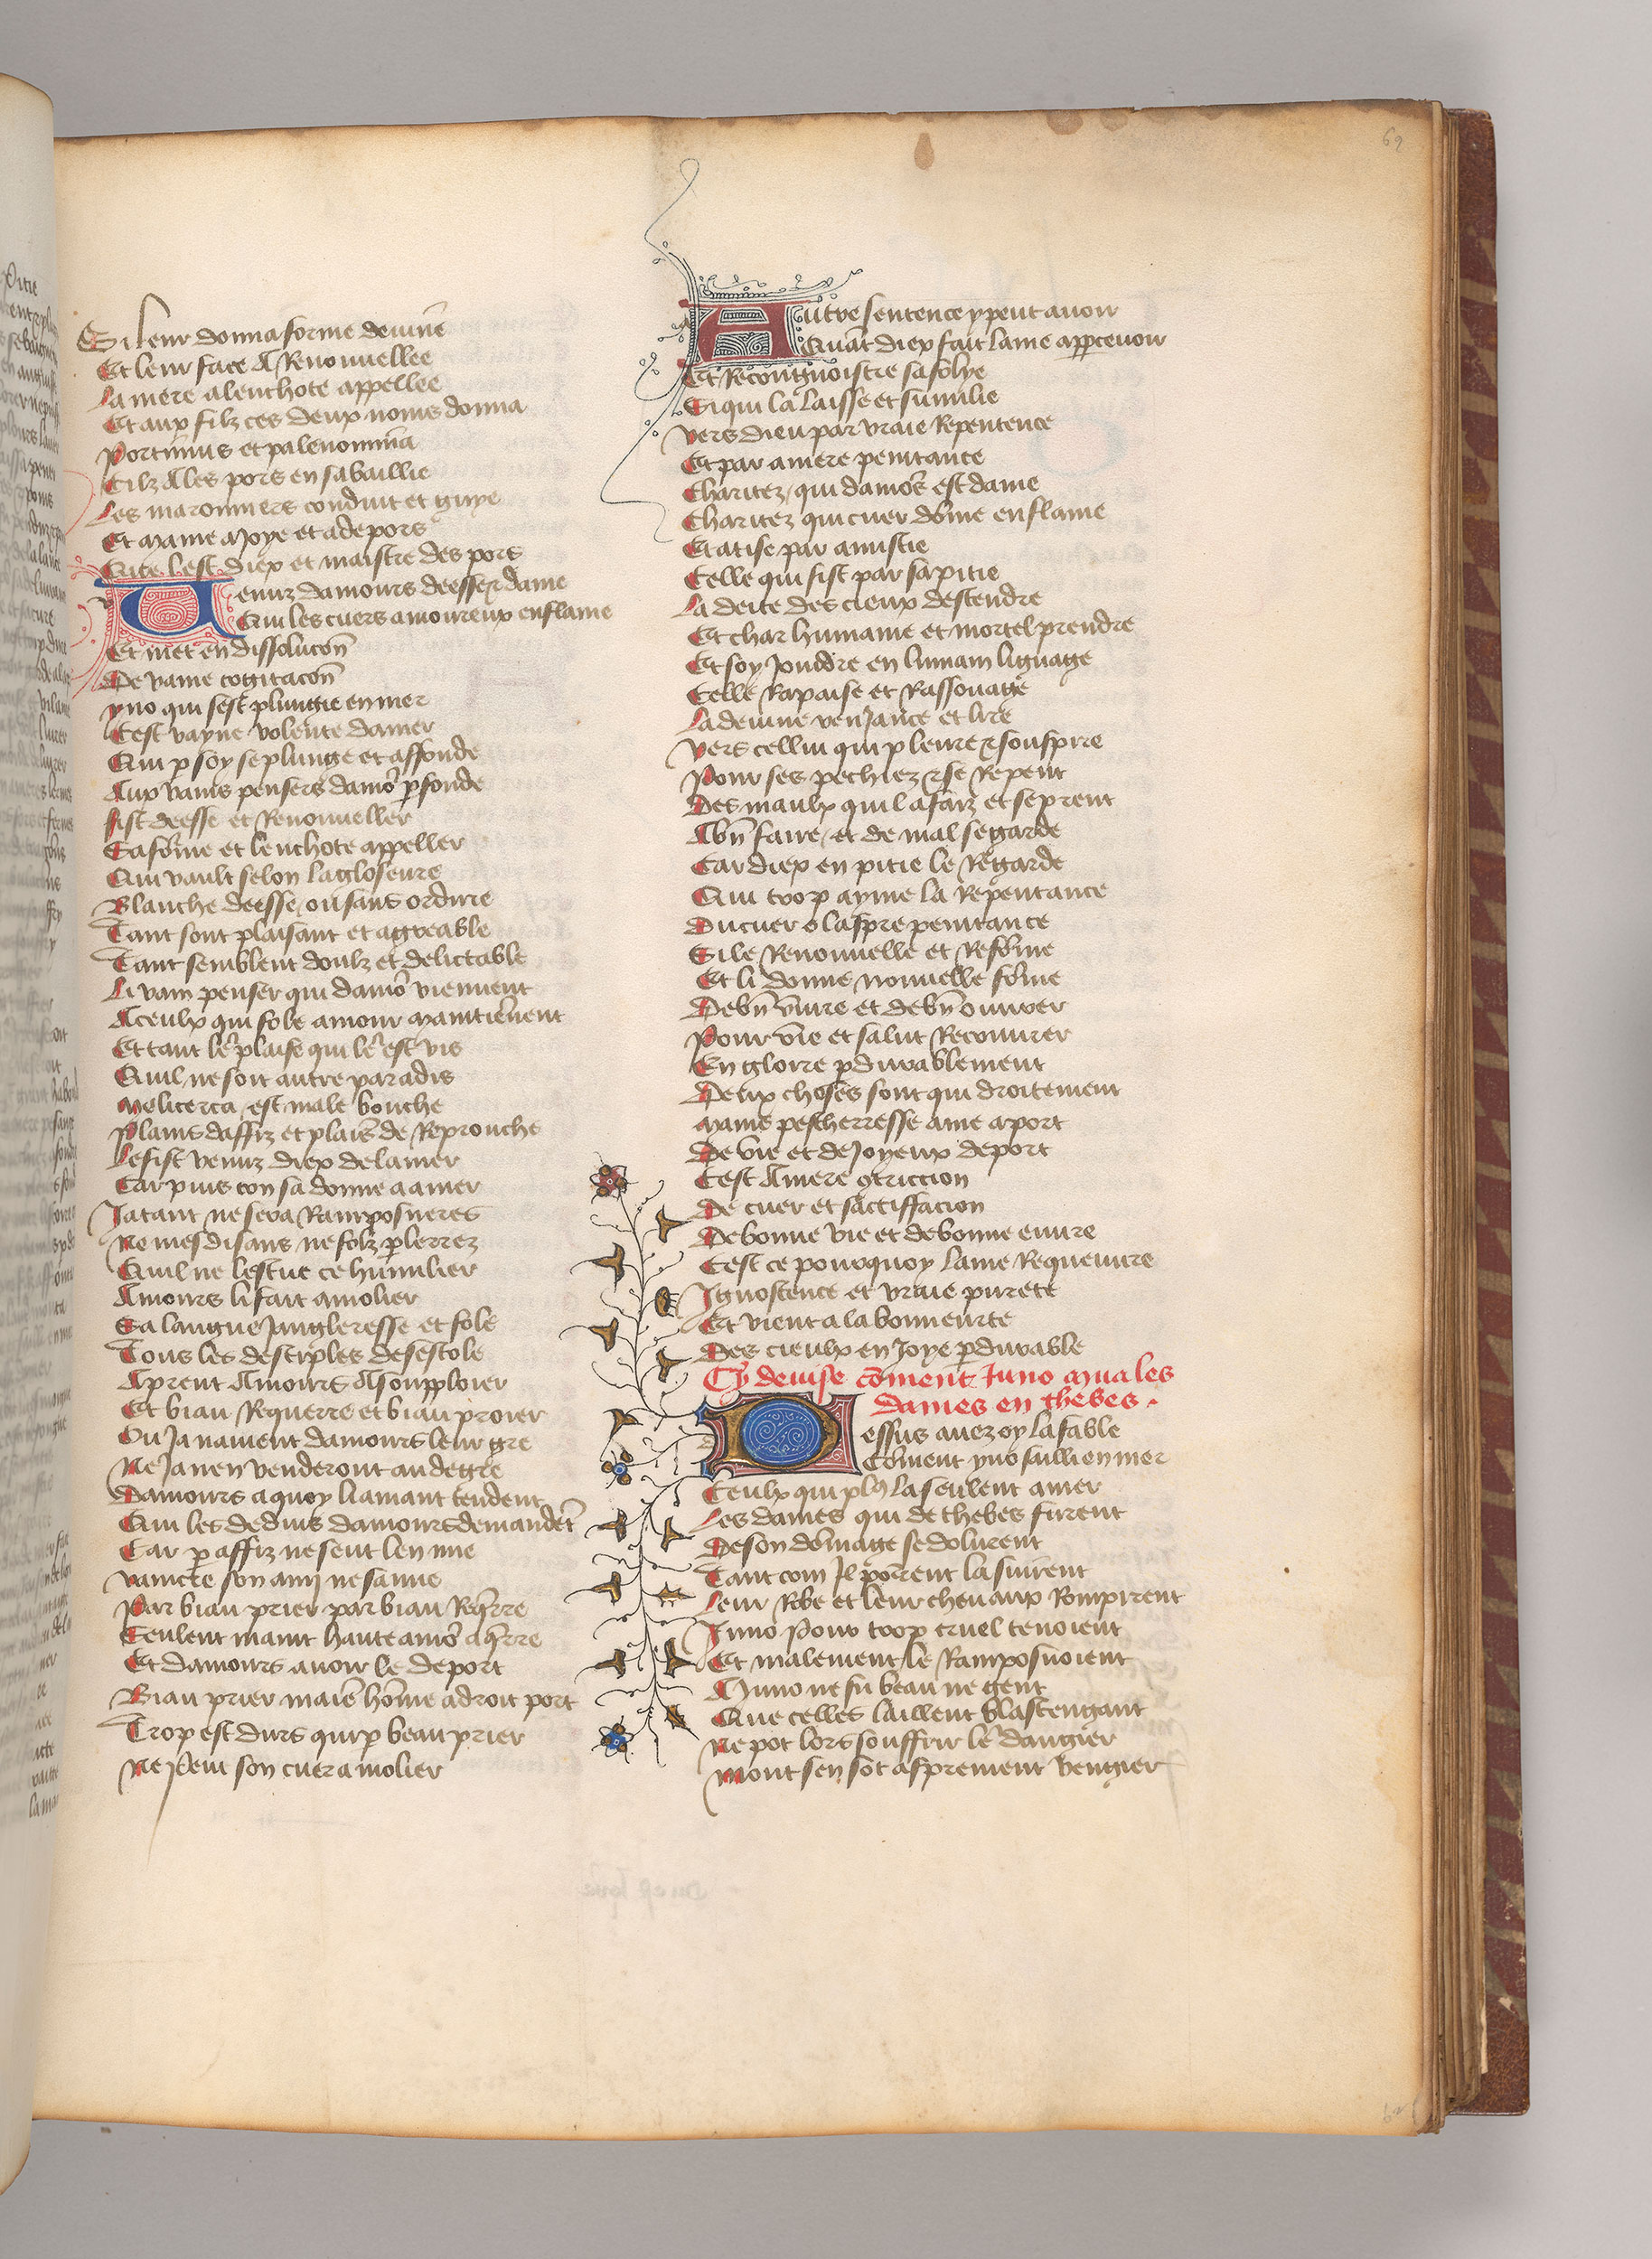 69
Si leur donna forme devine
Et leur face a Renouvellee
La mere a leuchote appellee
Et aux filz ces deux noms donna
Portunnus et palenomina
Cilz a les pors en sa baillie
Les maronniers conduit et guye
Et maine a joye et a depors
Cite lest diex et maistre des pors
Venuz damours deesse & dame
Qui les cuers amoureux enflame
Et met en dissolucon̄
De vaine cogitacon̄
yno qui sest plungie en mer
Cest vayne volente damer
Qui p soy se plunge et affonde
Aux vains pensers damor pfonde
fist deesse et Renouveller
Sa forme et leuchote appeller
Qui vault selon la gloseure
Blanche deesse ou sans ordure
Tant sont plaisant et agreable
Tant semblent doulz et delictable
Li vain penser qui damor viennent
A ceulx qui fole amour maintiennent
Et tant le plaise qui le est vis
Quil ne soit autre paradis
Melicerta est male bouche
Plains daffiz et plains de Reprouche
Le fist venuz diex de la mer
Car puis con sa donne a amer
Ja tant ne sera Ramposneres
Ne mesdisans ne folz plerrez
Quil ne lestue ce humilier
Amours li fait amolier
Sa langue Jangleresse et fole
Tous les desciples de sescole
Aprent Amours A soupploier
Et biau Requerre et biau proier
Ou Ja navient damours leur gre
Ne Ja nen venderont au degre
Damours a quoy li amant tendent
Qui les deduis damours demandēt
Car p affiz ne sent len mie
Vaincre son amy ne sa mie
Par biau prier par biau Reqrre
Seulent maint haute amor aqrre
Et damours avoir le deport
Biau prier maie hōme a droit port
Trop est durs qui p beau prier
Ne peut son cuer amolier
Autre sentence y peut avoir
Quāt diex fait lame appcevoir
Et Recongnoistre sa folye
Si qui la laisse et sumilie
Vers dieu par vraie Repentence
Et par amere penitance
Charitez qui damors est dame
Charitez qui cuer dōme enflame
Et atise par amistie
Celle qui fist par sa pitie
La deite des cieux destendre
Et char humaine et mortel prendre
Et soy Joindre en humain lignage
Celle Rapaise et Rassouage
La devine venjance et lire
Vers cellui qui pleure & souspire
Pour ses pechiez & se Repent
Des maulx quil a faiz et se prent
A bn̄ faire et de mal se garde
Car diex en pitie le Regarde
Qui trop ayme la Repentance
Du cuer o laspre penitance
Si le Renouvelle et Reforme
Et li donne nouvelle forme
De bn̄ vivre et de bn̄ ouvrer
Pour vie et salut Recouvrer
En gloire pdurablement
Deux choses sont qui droitement
Maine pescherresse ame a port
De vie et de Joyeux deport
Cest Amere 9triccion
De cuer et sactiffacion
De bonne vie et de bonne euvre
Cest ce pourquoy lame Requeuvre
Ignoscence et vraie purete
Et vient a la bonneurte
Des cieulx en Joye pdurable
Cy devise cōment Juno mua les
dames en thebes.
Dessus avez oy la fable
Cōment yno sailli en mer
Ceulx qui pl9 la seulent amer
Les dames qui de thebes furent
De son dōmage se dolurent
Tant com Il porrent la suirent
Leur Robe et leur cheuaux Rompirent
Juno pour trop cruel tenoient
Et malement le Ramposnoient
A Juno ne fu beau ne gent
Que celles laillent blastengant
Ne pot lors souffrir le dangier
Mont sen sot asprement vengier